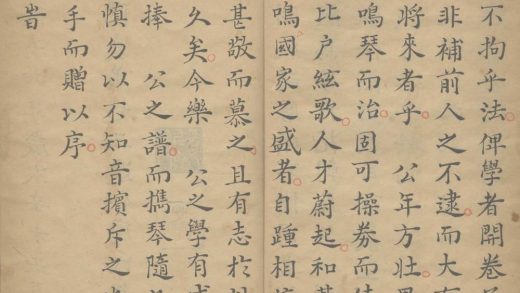 不拘乎法俾學者開卷
非補前人之不逮而大有
將來者乎 公年方壯
鳴琴而治固可操券而
比户絃歌人才蔚起和其
鳴國家之盛者自踵相
甚敬而慕之且有志於
久矣今樂 公之學有
捧 公之譜而携琴隨
慎勿以不知音擯斥之
手而贈以序
旹